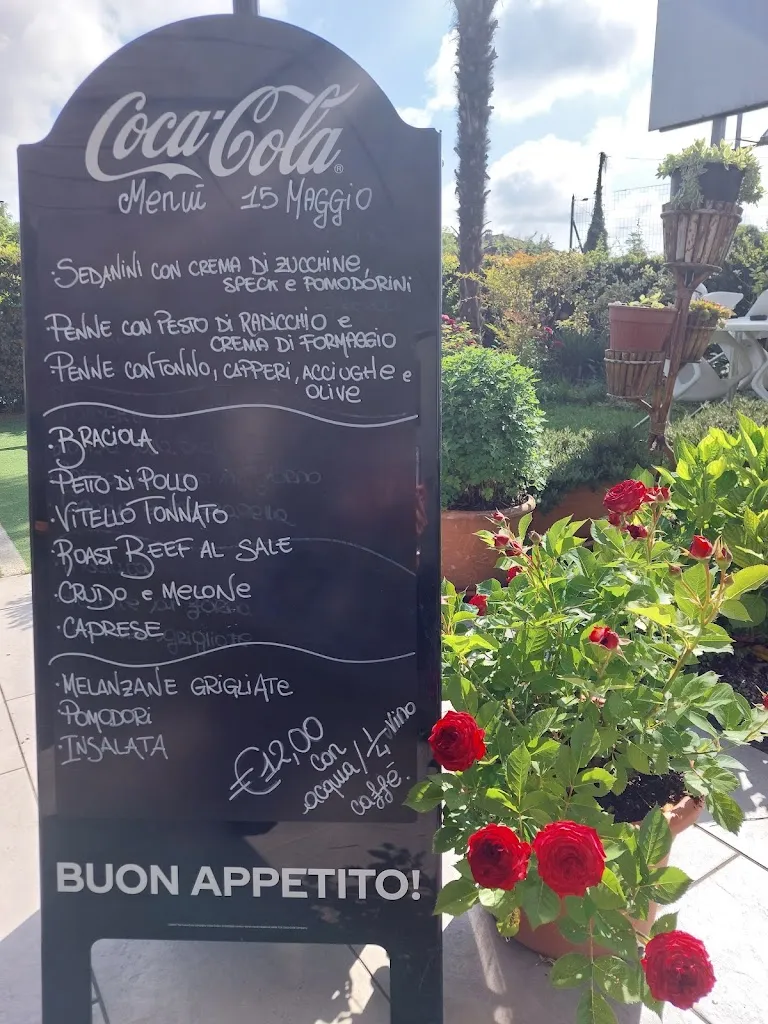 Coca-Cola
Menù 15 MAGGIO
·SEDANINI CON CREMA DI ZUCCHINE,
SPECK e POMODORINI
PENNE CON PESTO DI RADICCHIO e
CREMA DI FORMAGGIO
PENNE CON TONNO, CAPPERI, ACCIUGHE e
OLIVE
·BRACIOLA
PETTO DI POLLO
·VITELLO TONNATO
·ROAST BEEF AL SALE
·CRUDO e MELONE
·CAPRESE
·MELANZANE GRIGLIATE
·POMODORI
·INSALATA
€12,00
con
acqua/¼ vino
caffé.
BUON APPETITO!